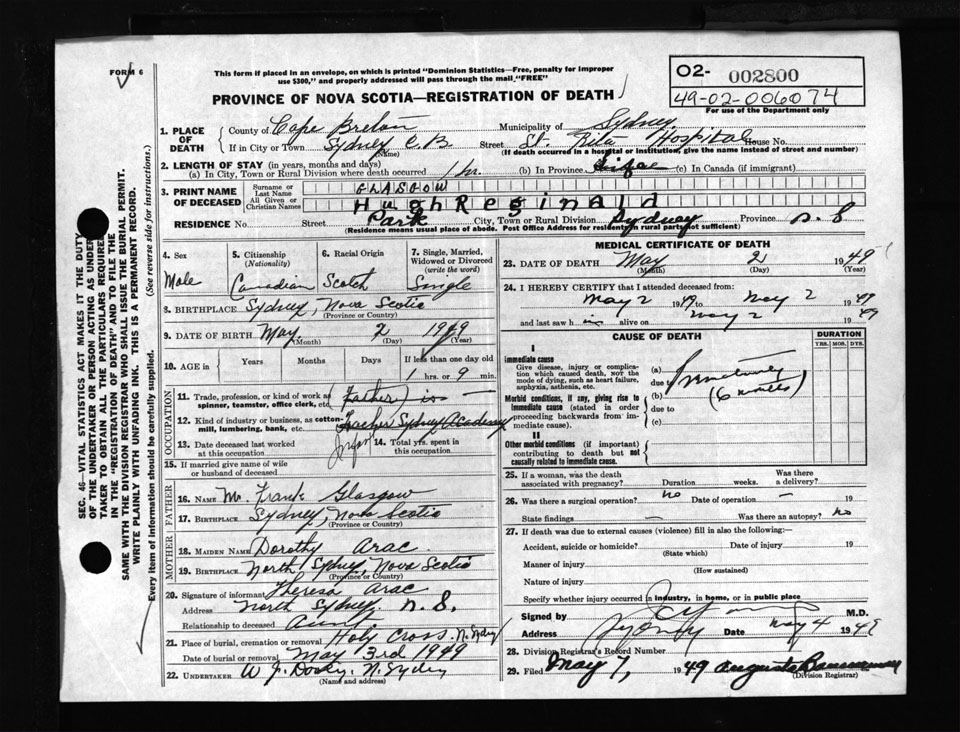 FORM 6
This form if placed in an envelope, on which is printed "Dominion Statistics—Free, penalty for improper
use $300," and properly addressed will pass through the mail "FREE"
PROVINCE OF NOVA SCOTIA—REGISTRATION OF DEATH
O2- 002800
49-02-006074
For use of the Department only
1. PLACE OF DEATH
County of Cape Breton Municipality of Sydney
If in City or Town Sydney C.B. Street St. Rita Hospital House No.
(Name) (If death occurred in a hospital or institution, give the name instead of street and number)
2. LENGTH OF STAY (in years, months and days)
(a) In City, Town or Rural Division where death occurred 1 hr. (b) In Province (c) In Canada (if immigrant)
3. PRINT NAME OF DECEASED
Surname or Last Name GLASGOW
All Given or Christian Names Hugh Reginald
RESIDENCE No. Street Park City, Town or Rural Division Sydney Province N.S
(Residence means usual place of abode. Post Office Address for residents in rural parts not sufficient)
4. Sex
Male
5. Citizenship (Nationality)
Canadian
6. Racial Origin
Scotch
7. Single, Married, Widowed or Divorced (write the word)
Single
8. BIRTHPLACE Sydney, Nova Scotia
(Province or Country)
9. DATE OF BIRTH May 2 1949
(Month) (Day) (Year)
10. AGE in Years Months Days If less than one day old
1 hrs. or 9 min.
OCCUPATION
11. Trade, profession, or kind of work as spinner, teamster, office clerk, etc. (Father) is —
12. Kind of industry or business, as cotton-mill, lumbering, bank, etc. Teacher Sydney Academy
13. Date deceased last worked at this occupation
14. Total yrs. spent in this occupation
15. If married give name of wife or husband of deceased
FATHER
16. Name Mr. Frank Glasgow
17. Birthplace Sydney, Nova Scotia
(Province or Country)
MOTHER
18. Maiden Name Dorothy Arac
19. Birthplace North Sydney, Nova Scotia
(Province or Country)
20. Signature of informant Theresa Arac
Address North Sydney. N.S.
Relationship to deceased Aunt.
21. Place of burial, cremation or removal Holy Cross. N. Sydney
Date of burial or removal May 3rd 1949
22. UNDERTAKER W J Dooley, N. Sydney
(Name and address)
MEDICAL CERTIFICATE OF DEATH
23. DATE OF DEATH May 2 1949
(Month) (Day) (Year)
24. I HEREBY CERTIFY that I attended deceased from:
May 2 1949 to May 2 1949
and last saw him alive on May 2 1949
CAUSE OF DEATH
DURATION
YRS. MOS. DYS.
I
Immediate cause
Give disease, injury or complication which caused death, NOT the mode of dying, such as heart failure, asphyxia, asthenia, etc.
(a) Prematurity
due to
(b) (6 months)
Morbid conditions, if any, giving rise to immediate cause (stated in order proceeding backwards from immediate cause).
due to
(c)
II
Other morbid conditions (if important) contributing to death but not causally related to immediate cause.
25. If a woman, was the death associated with pregnancy? Duration weeks. Was there a delivery?
26. Was there a surgical operation? no Date of operation — 19
State findings — Was there an autopsy? no
27. If death was due to external causes (violence) fill in also the following:—
Accident, suicide or homicide? Date of injury 19
(State which)
Manner of injury
(How sustained)
Nature of injury
Specify whether injury occurred in industry, in home, or in public place
Signed by M.D.
Address Sydney Date May 4 1949
28. Division Registrar's Record Number
29. Filed May 7, 1949 Augusta
(Division Registrar)
SEC. 46—VITAL STATISTICS ACT MAKES IT THE DUTY
OF THE UNDERTAKER OR PERSON ACTING AS UNDER-
TAKER TO OBTAIN ALL THE PARTICULARS REQUIRED
IN THE "REGISTRATION OF DEATH" AND TO FILE THE
SAME WITH THE DIVISION REGISTRAR WHO SHALL ISSUE THE BURIAL PERMIT.
WRITE PLAINLY WITH UNFADING INK. THIS IS A PERMANENT RECORD.
Every item of information should be carefully supplied. (See reverse side for instructions.)